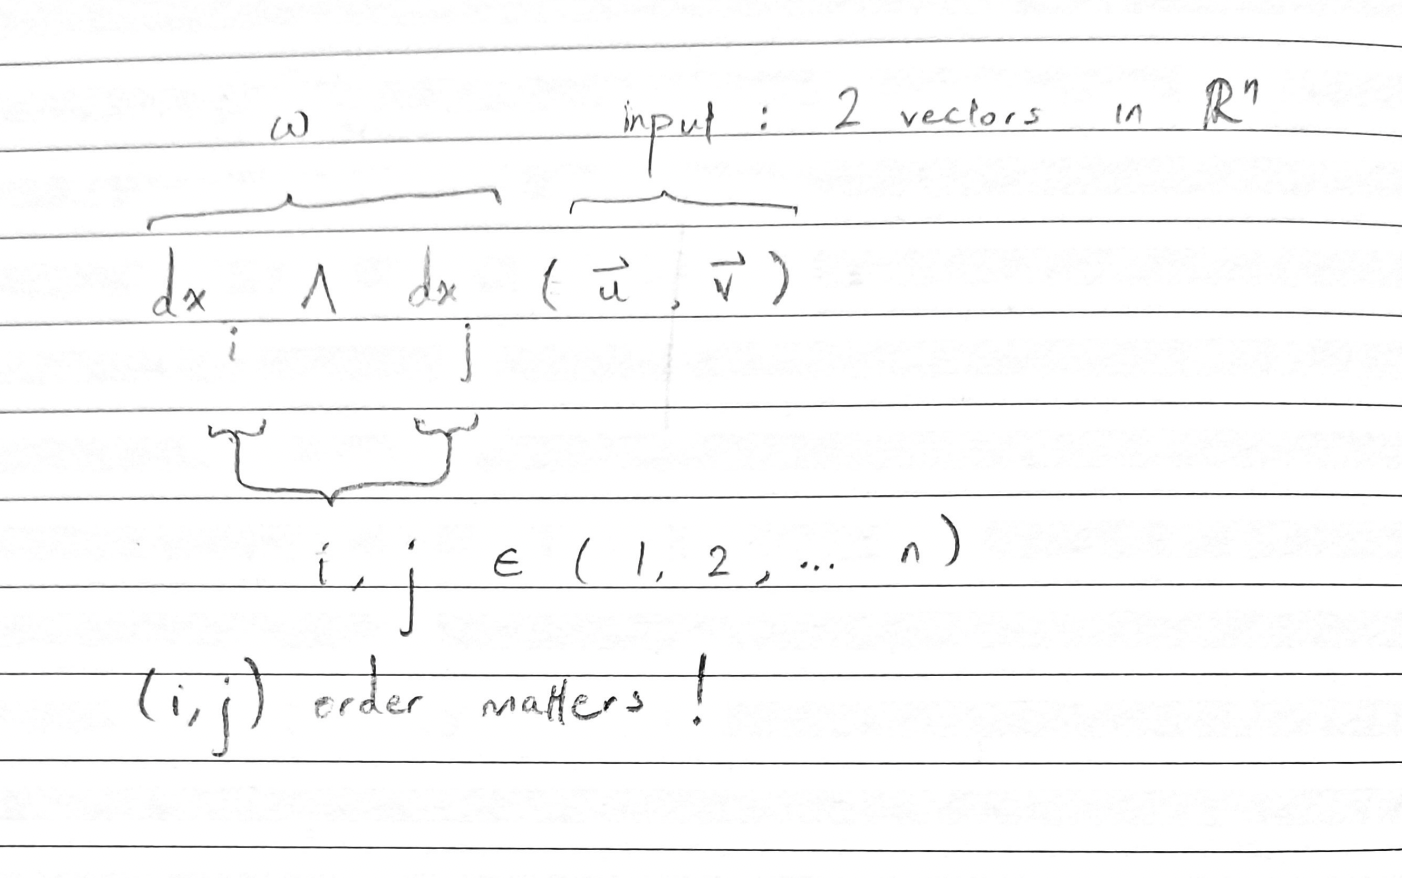 ω input : 2 vectors in ℝⁿ
dx ∧ dx ( u⃗ , v⃗ )
i j
i , j ∈ ( 1, 2, ... n )
(i,j) order matters !